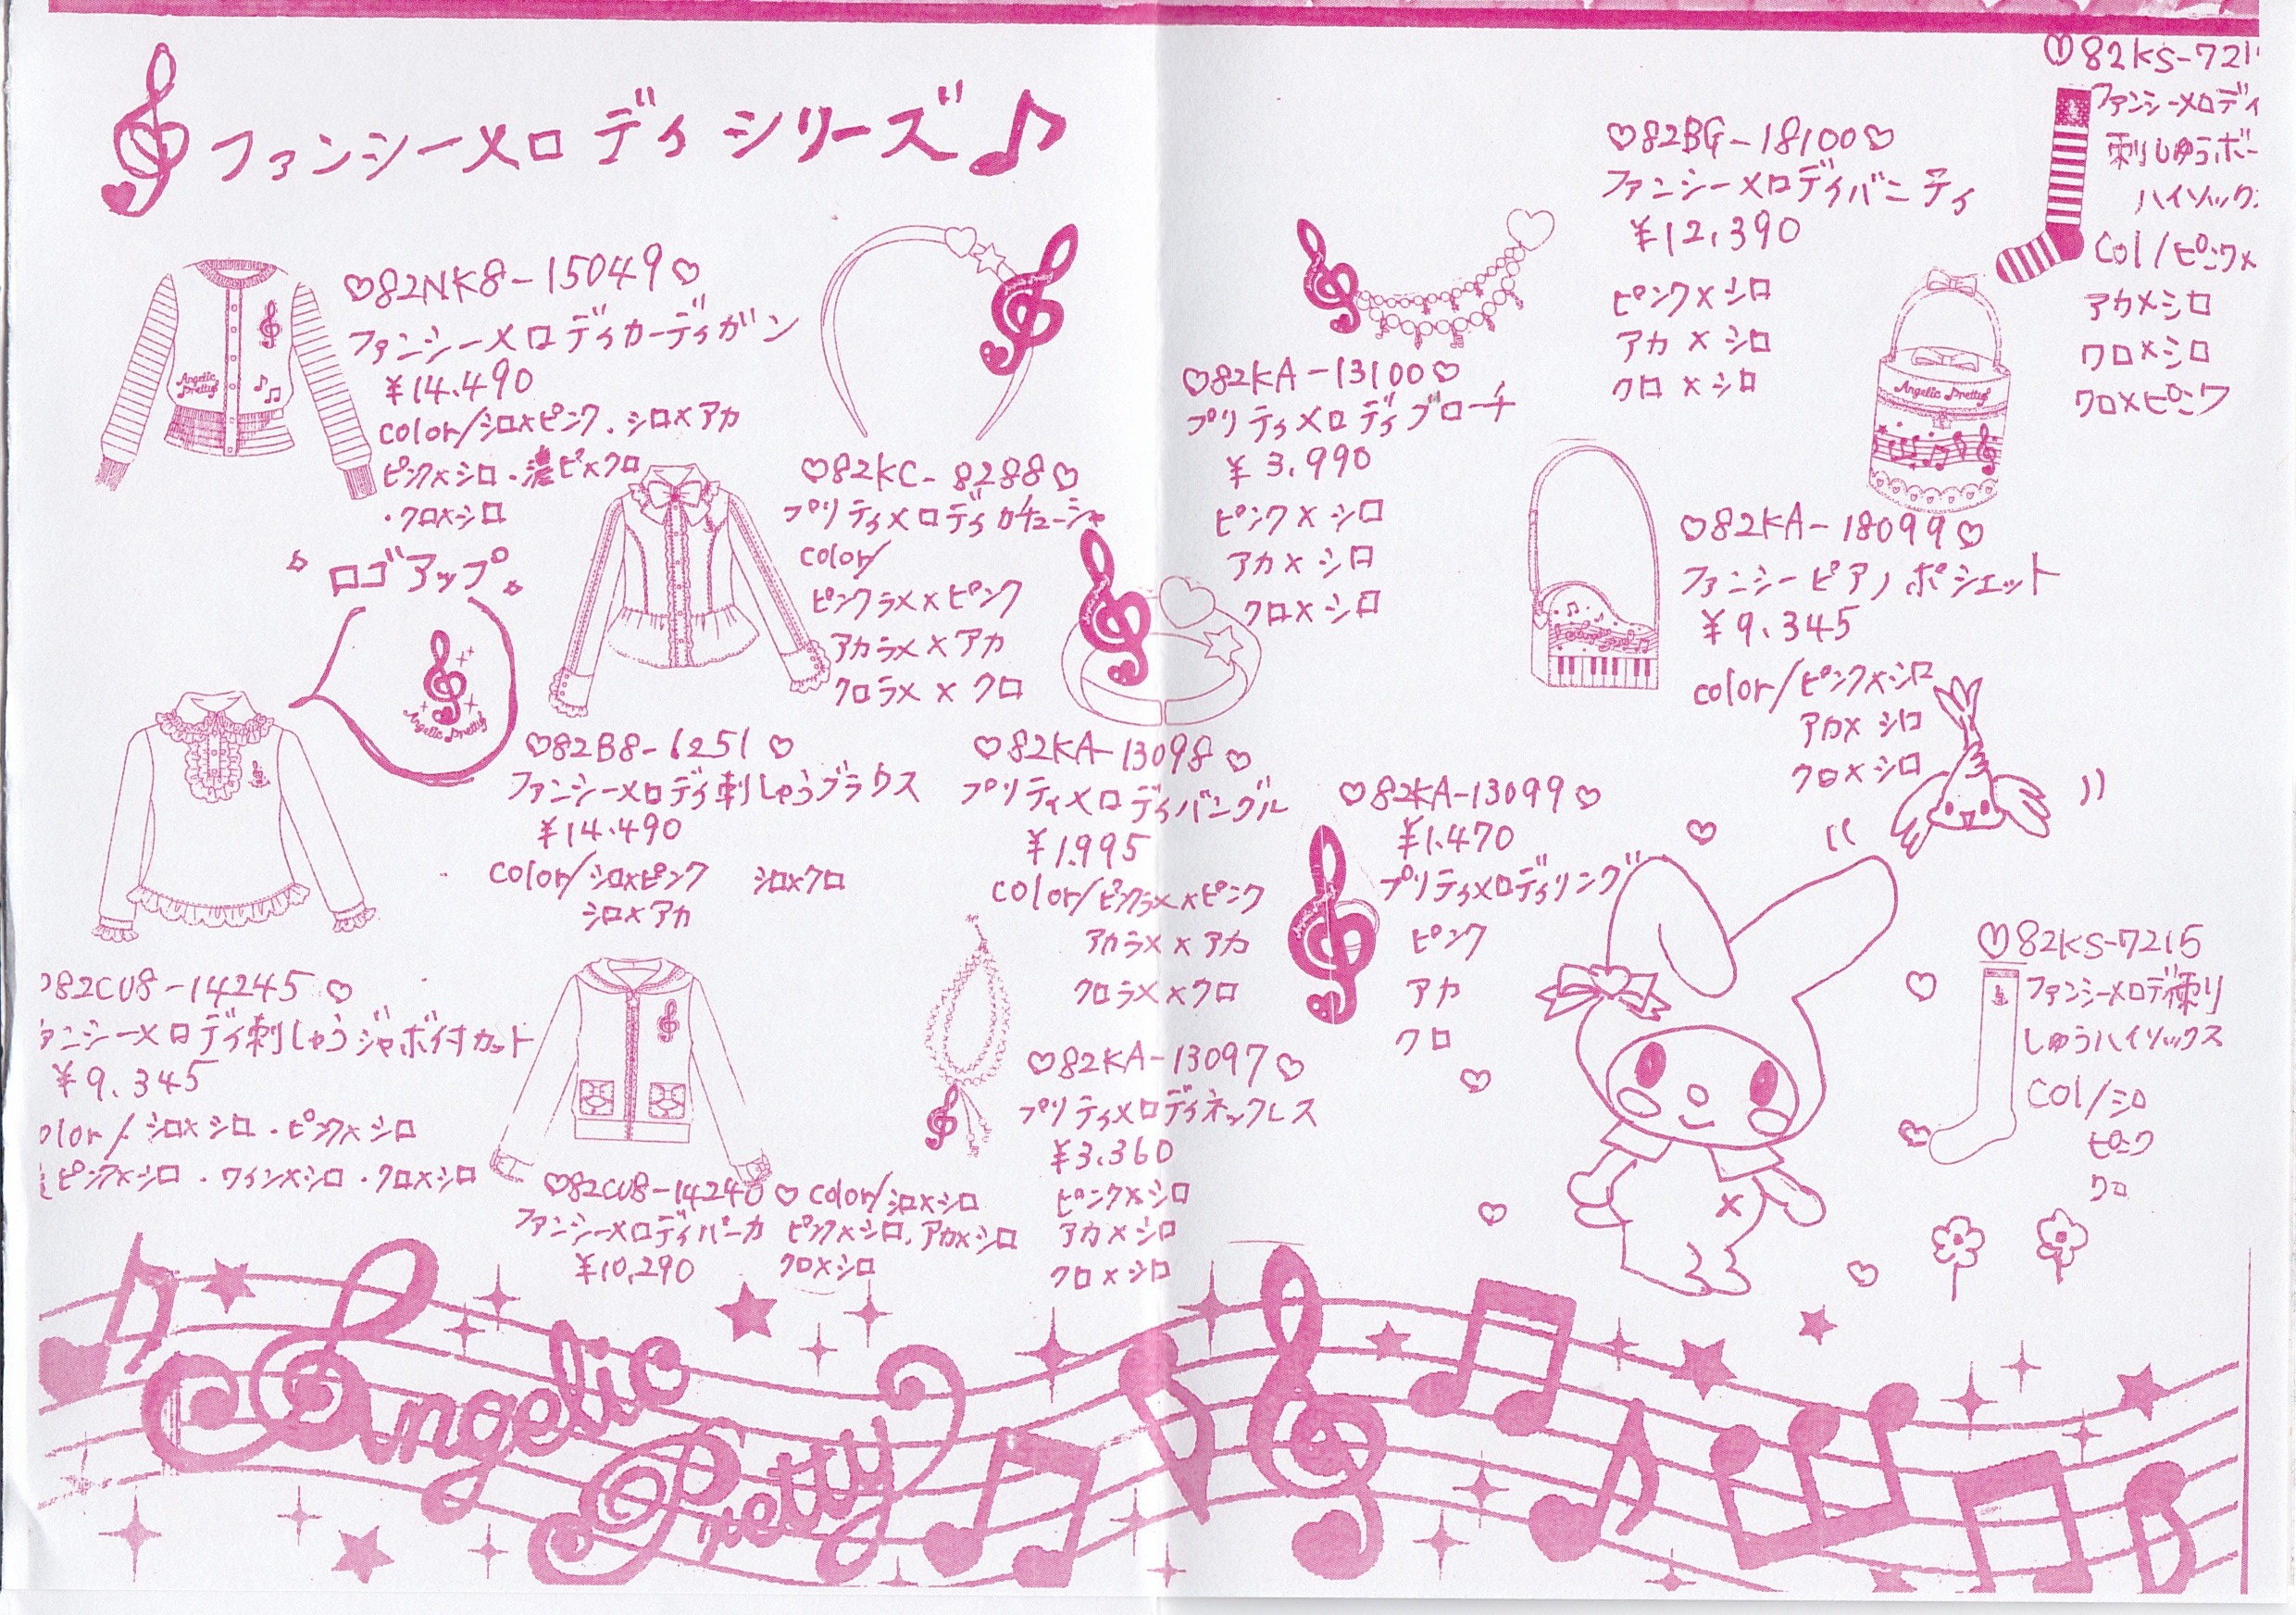 ファンシーメロディシリーズ♪
♡82NK8-15049♡
ファンシーメロディカーディガン
¥14.490
color/シロ×ピンク、シロ×アカ
ピンク×シロ・濃ピ×クロ
・クロ×シロ
Angelic Pretty
ロゴアップ
Angelic Pretty
82CU8-14245♡
ファンシーメロディ刺しゅうジャボ付カット
¥9.345
olor/シロ×シロ・ピンク×シロ
ピンク×シロ・ワイン×シロ・クロ×シロ
♡82B8-6251♡
ファンシーメロディ刺しゅうブラウス
¥14.490
color/シロ×ピンク シロ×クロ
シロ×アカ
♡82CU8-14240♡ color/シロ×シロ
ファンシーメロディパーカ ピンク×シロ、アカ×シロ
¥10,290 クロ×シロ
♡82KC-8288♡
プリティメロディカチューシャ
color/
ピンクラメ×ピンク
アカラメ×アカ
クロラメ×クロ
♡82KA-13098♡
プリティメロディバングル
¥1.995
color/ピンクラメ×ピンク
アカラメ×アカ
クロラメ×クロ
♡82KA-13097♡
プリティメロディネックレス
¥3.360
ピンク×シロ
アカ×シロ
クロ×シロ
♡82KA-13100♡
プリティメロディブローチ
¥3.990
ピンク×シロ
アカ×シロ
クロ×シロ
♡82KA-13099♡
¥1.470
プリティメロディリング
ピンク
アカ
クロ
♡82BG-18100♡
ファンシーメロディバニティ
¥12,390
ピンク×シロ
アカ×シロ
クロ×シロ
Angelic Pretty
♡82KA-18099♡
ファンシーピアノポシェット
¥9.345
color/ピンク×シロ
アカ×シロ
クロ×シロ
♡82KS-721
ファンシーメロディ
刺しゅうボー
ハイソック
Col/ピンク×
アカ×シロ
クロ×シロ
クロ×ピンク
♡82KS-7215
ファンシーメロディ刺
しゅうハイソックス
Col/シロ
ピンク
クロ
Angelic
Pretty